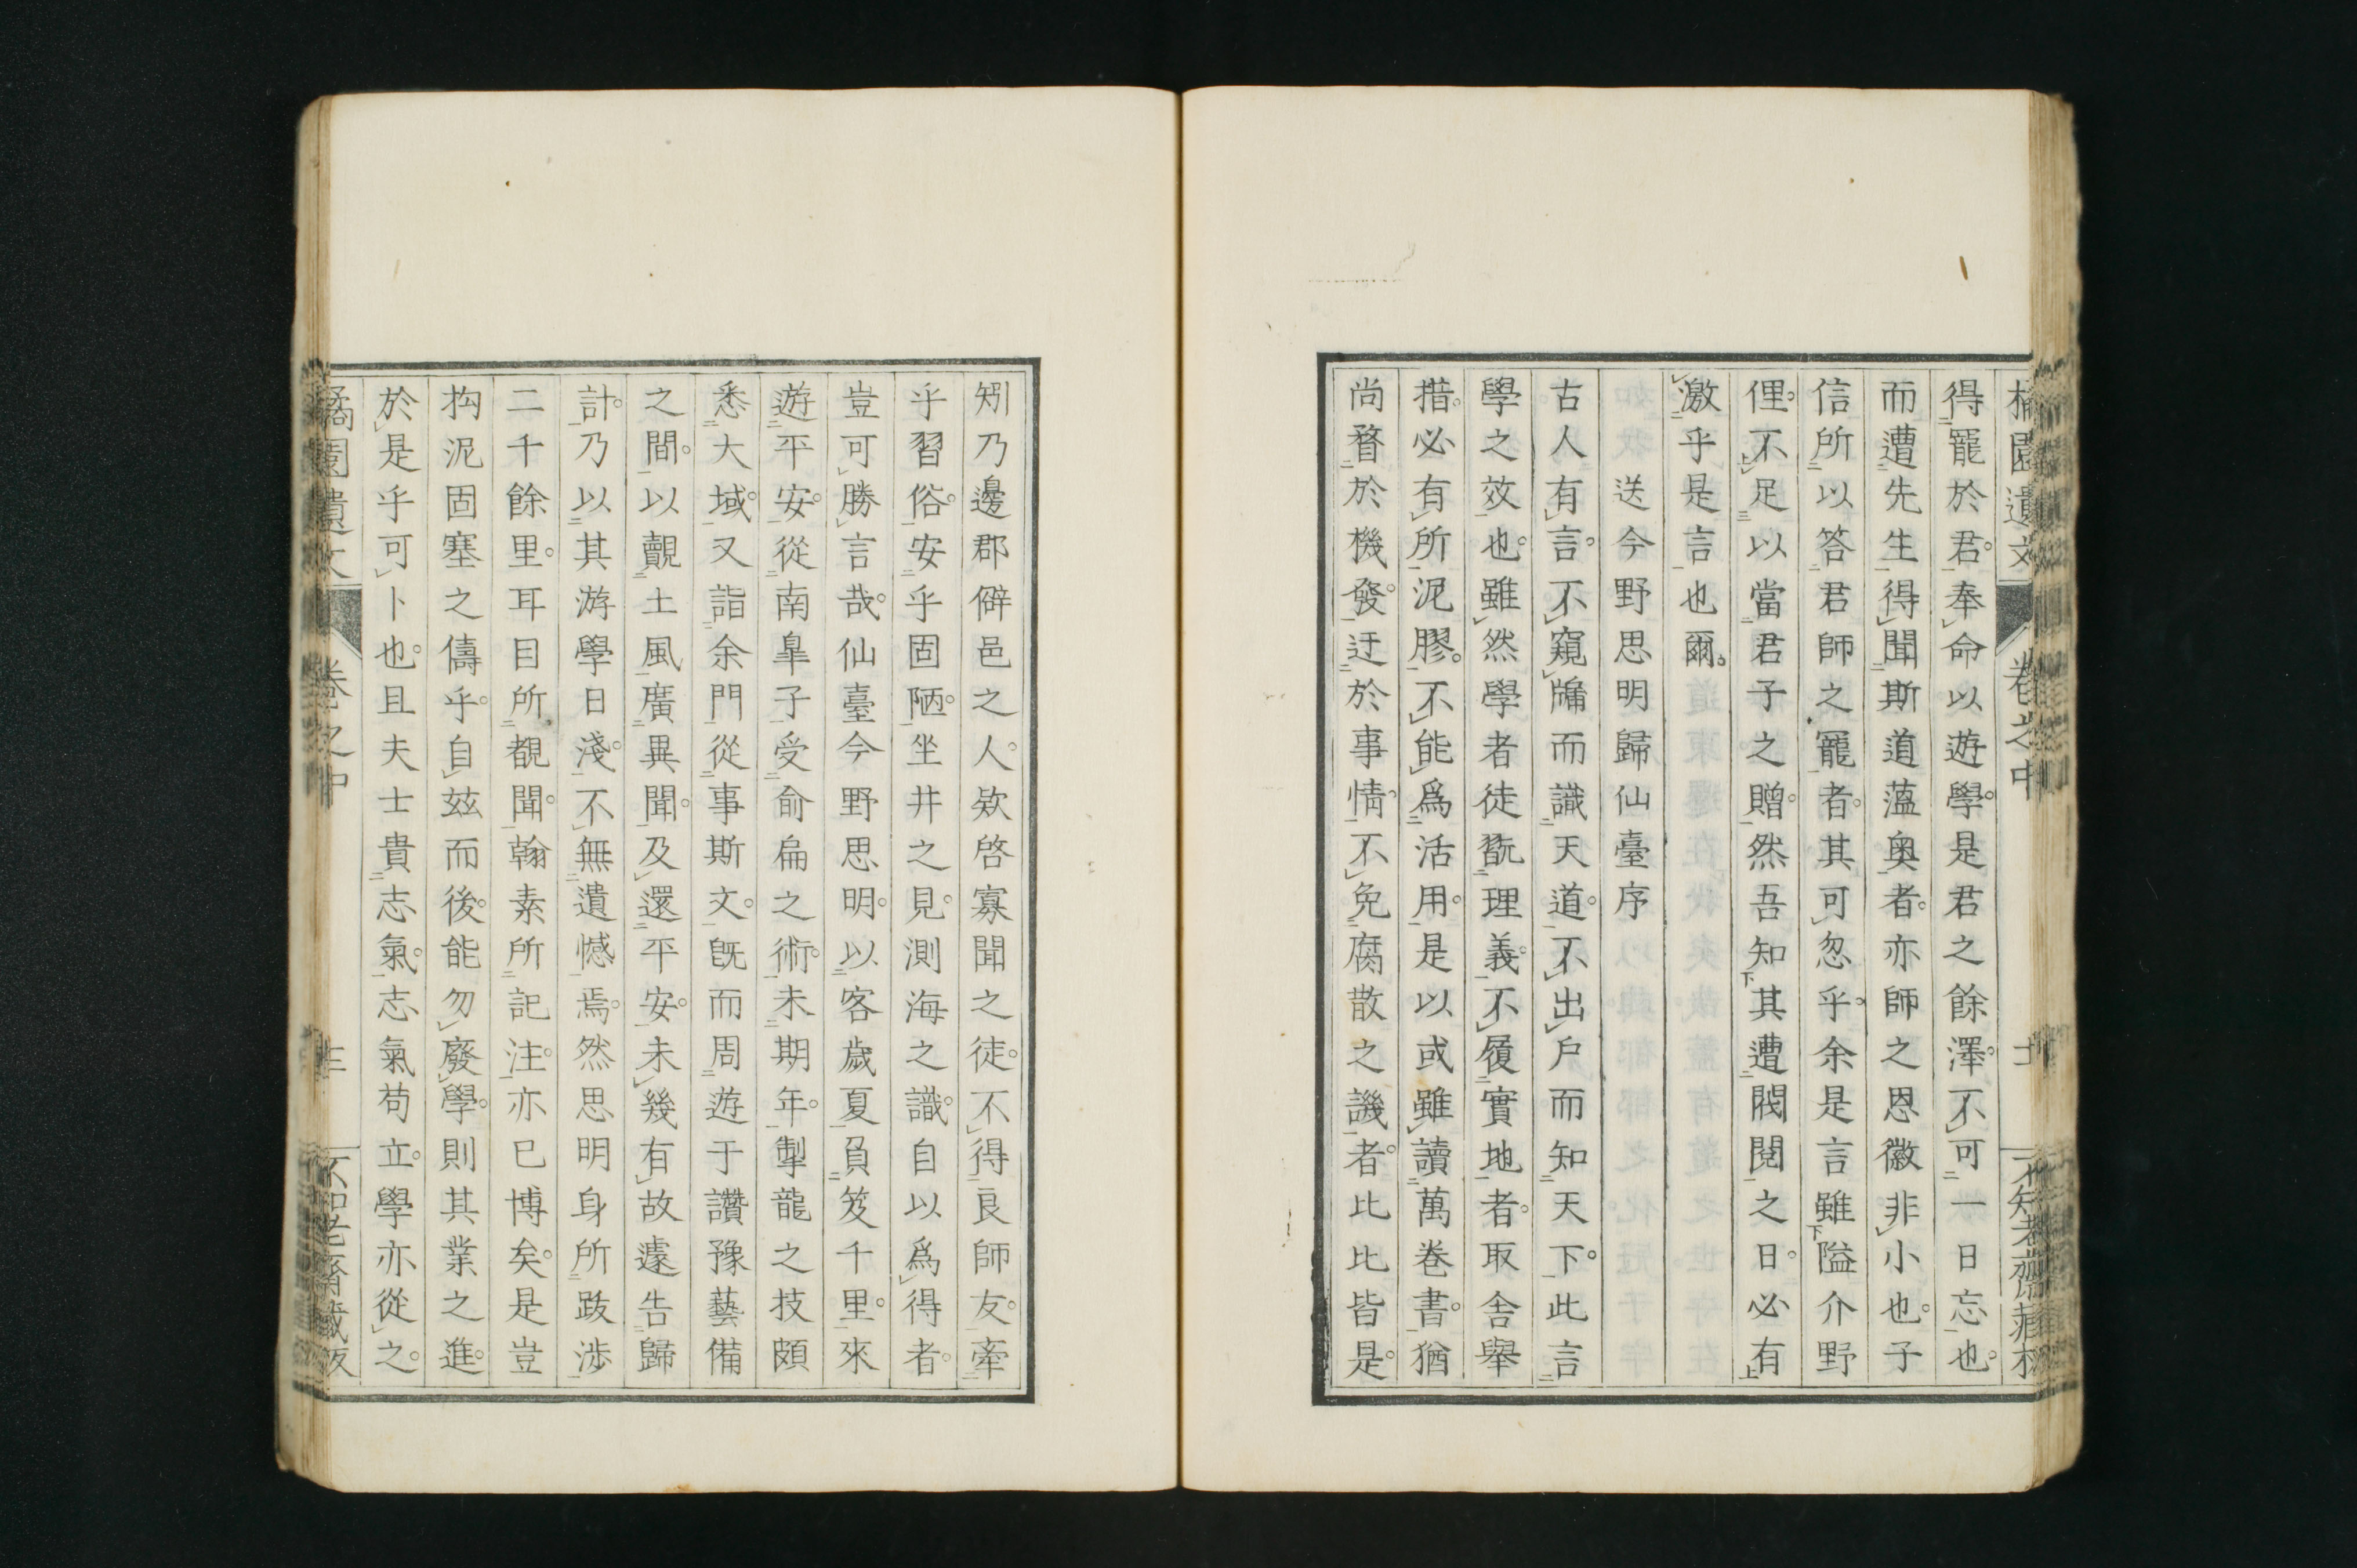 橘園遺文 卷之中 十 不知老齋藏板
得寵於君。奉命以遊學。是君之餘澤。不可一日忘也。
而遭先生得聞斯道薀奧者。亦師之恩徽非小也。子
信所以答君師之寵者。其可忽乎。余是言雖隘介野
俚。不足以當君子之贈。然吾知其遭閥閱之日。必有
激乎是言也爾。
送今野思明歸仙臺序
古人有言。不窺牖而識天道。不出戶而知天下。此言
學之效也。雖然學者徒翫理義。不履實地者。取舍舉
措。必有所泥膠。不能爲活用。是以或雖讀萬卷書。猶
尚瞀於機發。迂於事情。不免腐散之譏者。比比皆是。
矧乃邊郡僻邑之人。欵啓寡聞之徒。不得良師友。牽
乎習俗。安乎固陋。坐井之見。測海之識。自以爲得者。
豈可勝言哉。仙臺今野思明。以客歲夏負笈千里。來
遊平安。從南皐子受俞扁之術。未期年。掣龍之技頗
悉大域。又詣余門從事斯文。旣而周遊于讚豫藝備
之間。以觀土風廣異聞。及還平安。未幾有故遽告歸
計。乃以其游學日淺。不無遺憾焉。然思明身所跋涉
二千餘里。耳目所覩聞。翰素所記注。亦已博矣。是豈
拘泥固塞之儔乎。自茲而後。能勿廢學。則其業之進。
於是乎可卜也。且夫士貴志氣。志氣苟立。學亦從之。
橘園遺文 卷之中 不知老齋藏板